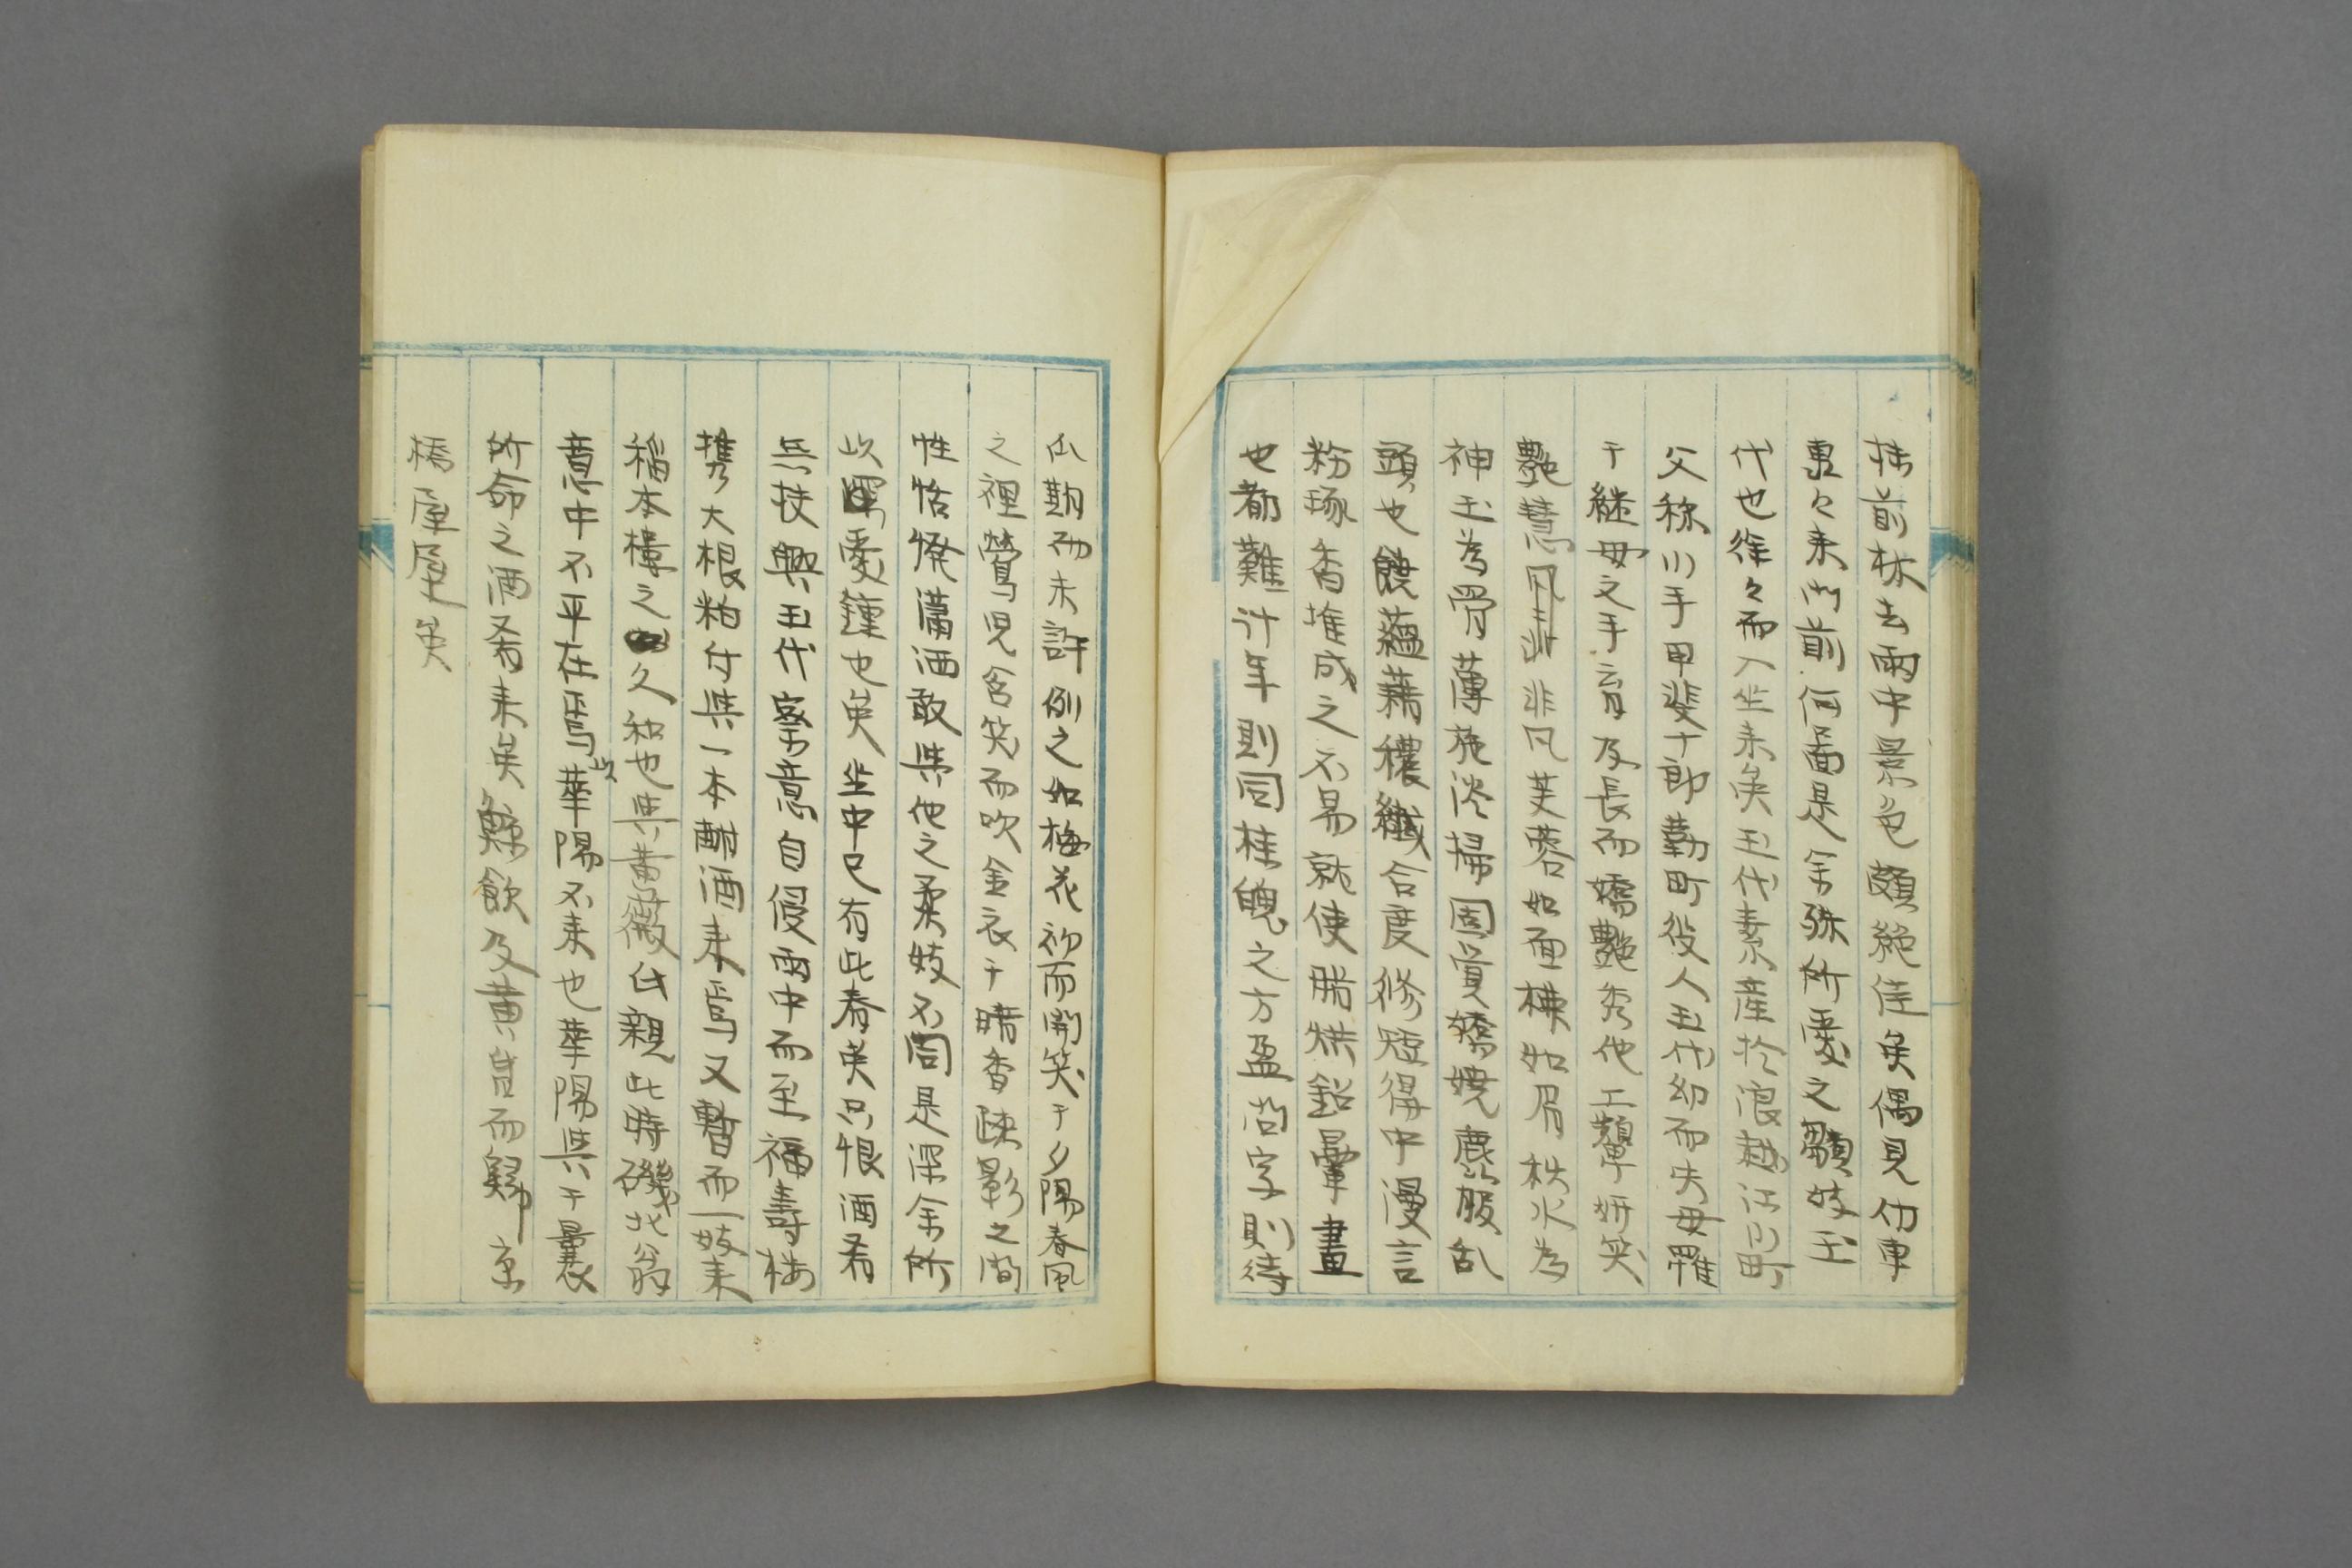 前林去雨中景色頗絶佳矣偶見俥車
来門前何面是余殊所愛之顰妓玉
代也徐々而入坐来矣玉代素産於浪越江川町
父称川手甲斐十郎勤町役人玉代幼而失母罹
于継母之手育及長而嬌艶秀他工顰妍笑
艶慧非凡芙蓉如面横如眉秋水為
神玉為骨薄施淡掃固質嬌嬈鹿服乱
頭也饒蘊藉穠纖合度修短得中漫言
粉琢香堆成之不易就使脂烘鉛暈畫
也都難計年則同桂魄之方盈尚字則待
瓜期而未許例之如梅花初而開笑于夕陽春風
之裡鶯児含笑而吹金衣于晴香疎影之間
性恬凌瀟洒敢與他之柔妓不同是梁余所
以愛鍾也矣坐中已有此春矣只恨酒肴
無扶興玉代察意自侵雨中而至福寿楼
携大根粕付與一本酎酒来焉又暫而一妓来
稲本樓之久和也與黄薇氏親此時磯北翁
意中不平在焉以華陽不来也華陽與于曩
所命之酒肴来矣鯨飲及黄昏而歸京
橋屋矣